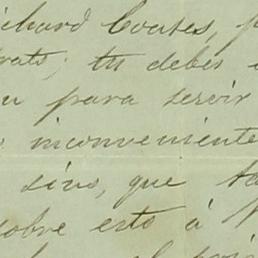 ichard Coates, p
rats; tu debes
u para servir
inconveniente
sino, que ta
sobre esto á